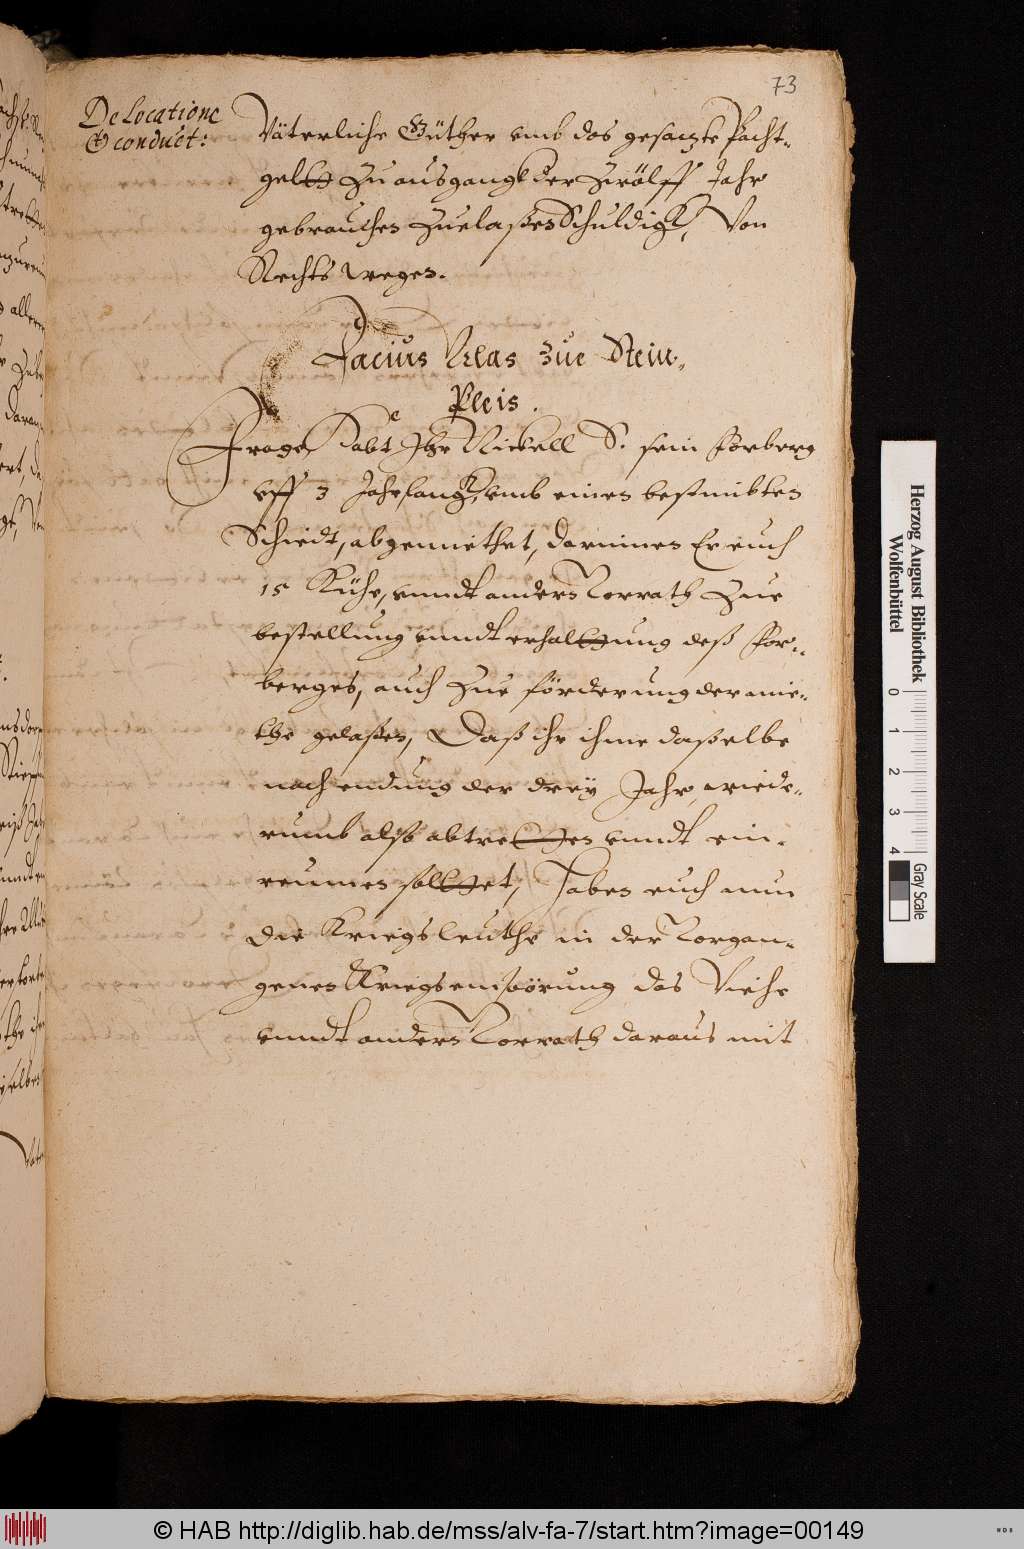 73
De Locatione
& conduct:
Väterliche Güther umb das gesaczte Pacht-
geltt Zu ausgangk der Zwölff Jahr
gebrauchen Zuelaßen Schuldigk, Von
Rechts wegen.
Facius Clas zue Stein-
Pleis.
Frage, Habt Ihr Nickell S. sein Forberg
uff 3 Jahrlangk, umb einen bestimbten
Schiedt, abgemiethet, darinnen Er euch
15 Kühe, unndt andern Vorrath Zue
bestellung unndt erhalttung deß For-
berges, auch Zue förderung der mie-
the gelaßen, Daß ihr ihme daßelbe
nach endung der drey Jahr, wiede-
rumb alß abtretten unndt ein-
reumen solttet, Haben euch nun
die Kriegsleuthe in der Vorgan-
genen Kriegsempörung das Viehe
unndt andern Vorrath daraus mit
Herzog August Bibliothek
Wolfenbüttel
0 1 2 3 4
Gray Scale
© HAB http://diglib.hab.de/mss/alv-fa-7/start.htm?image=00149